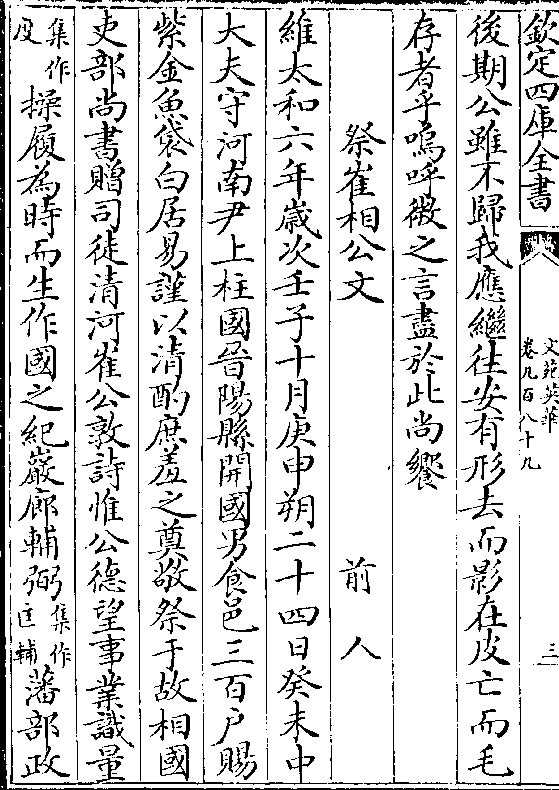 欽定四庫全書
文苑英華
卷九百八十九
三
後期公雖不歸我應繼往安有形去而影在皮亡而毛
存者乎嗚呼微之言盡於此尚饗
祭崔相公文 前人
維太和六年嵗次壬子十月庚申朔二十四日癸未中
大夫守河南尹上柱國晉陽縣開國男食邑三百户賜
紫金魚袋白居易謹以清酌庶羞之奠敬祭于故相國
吏部尚書贈司徒清河崔公敦詩惟公德望事業識量
集作度操履為時而生作國之紀巖廊輔弼集作匡輔藩部政